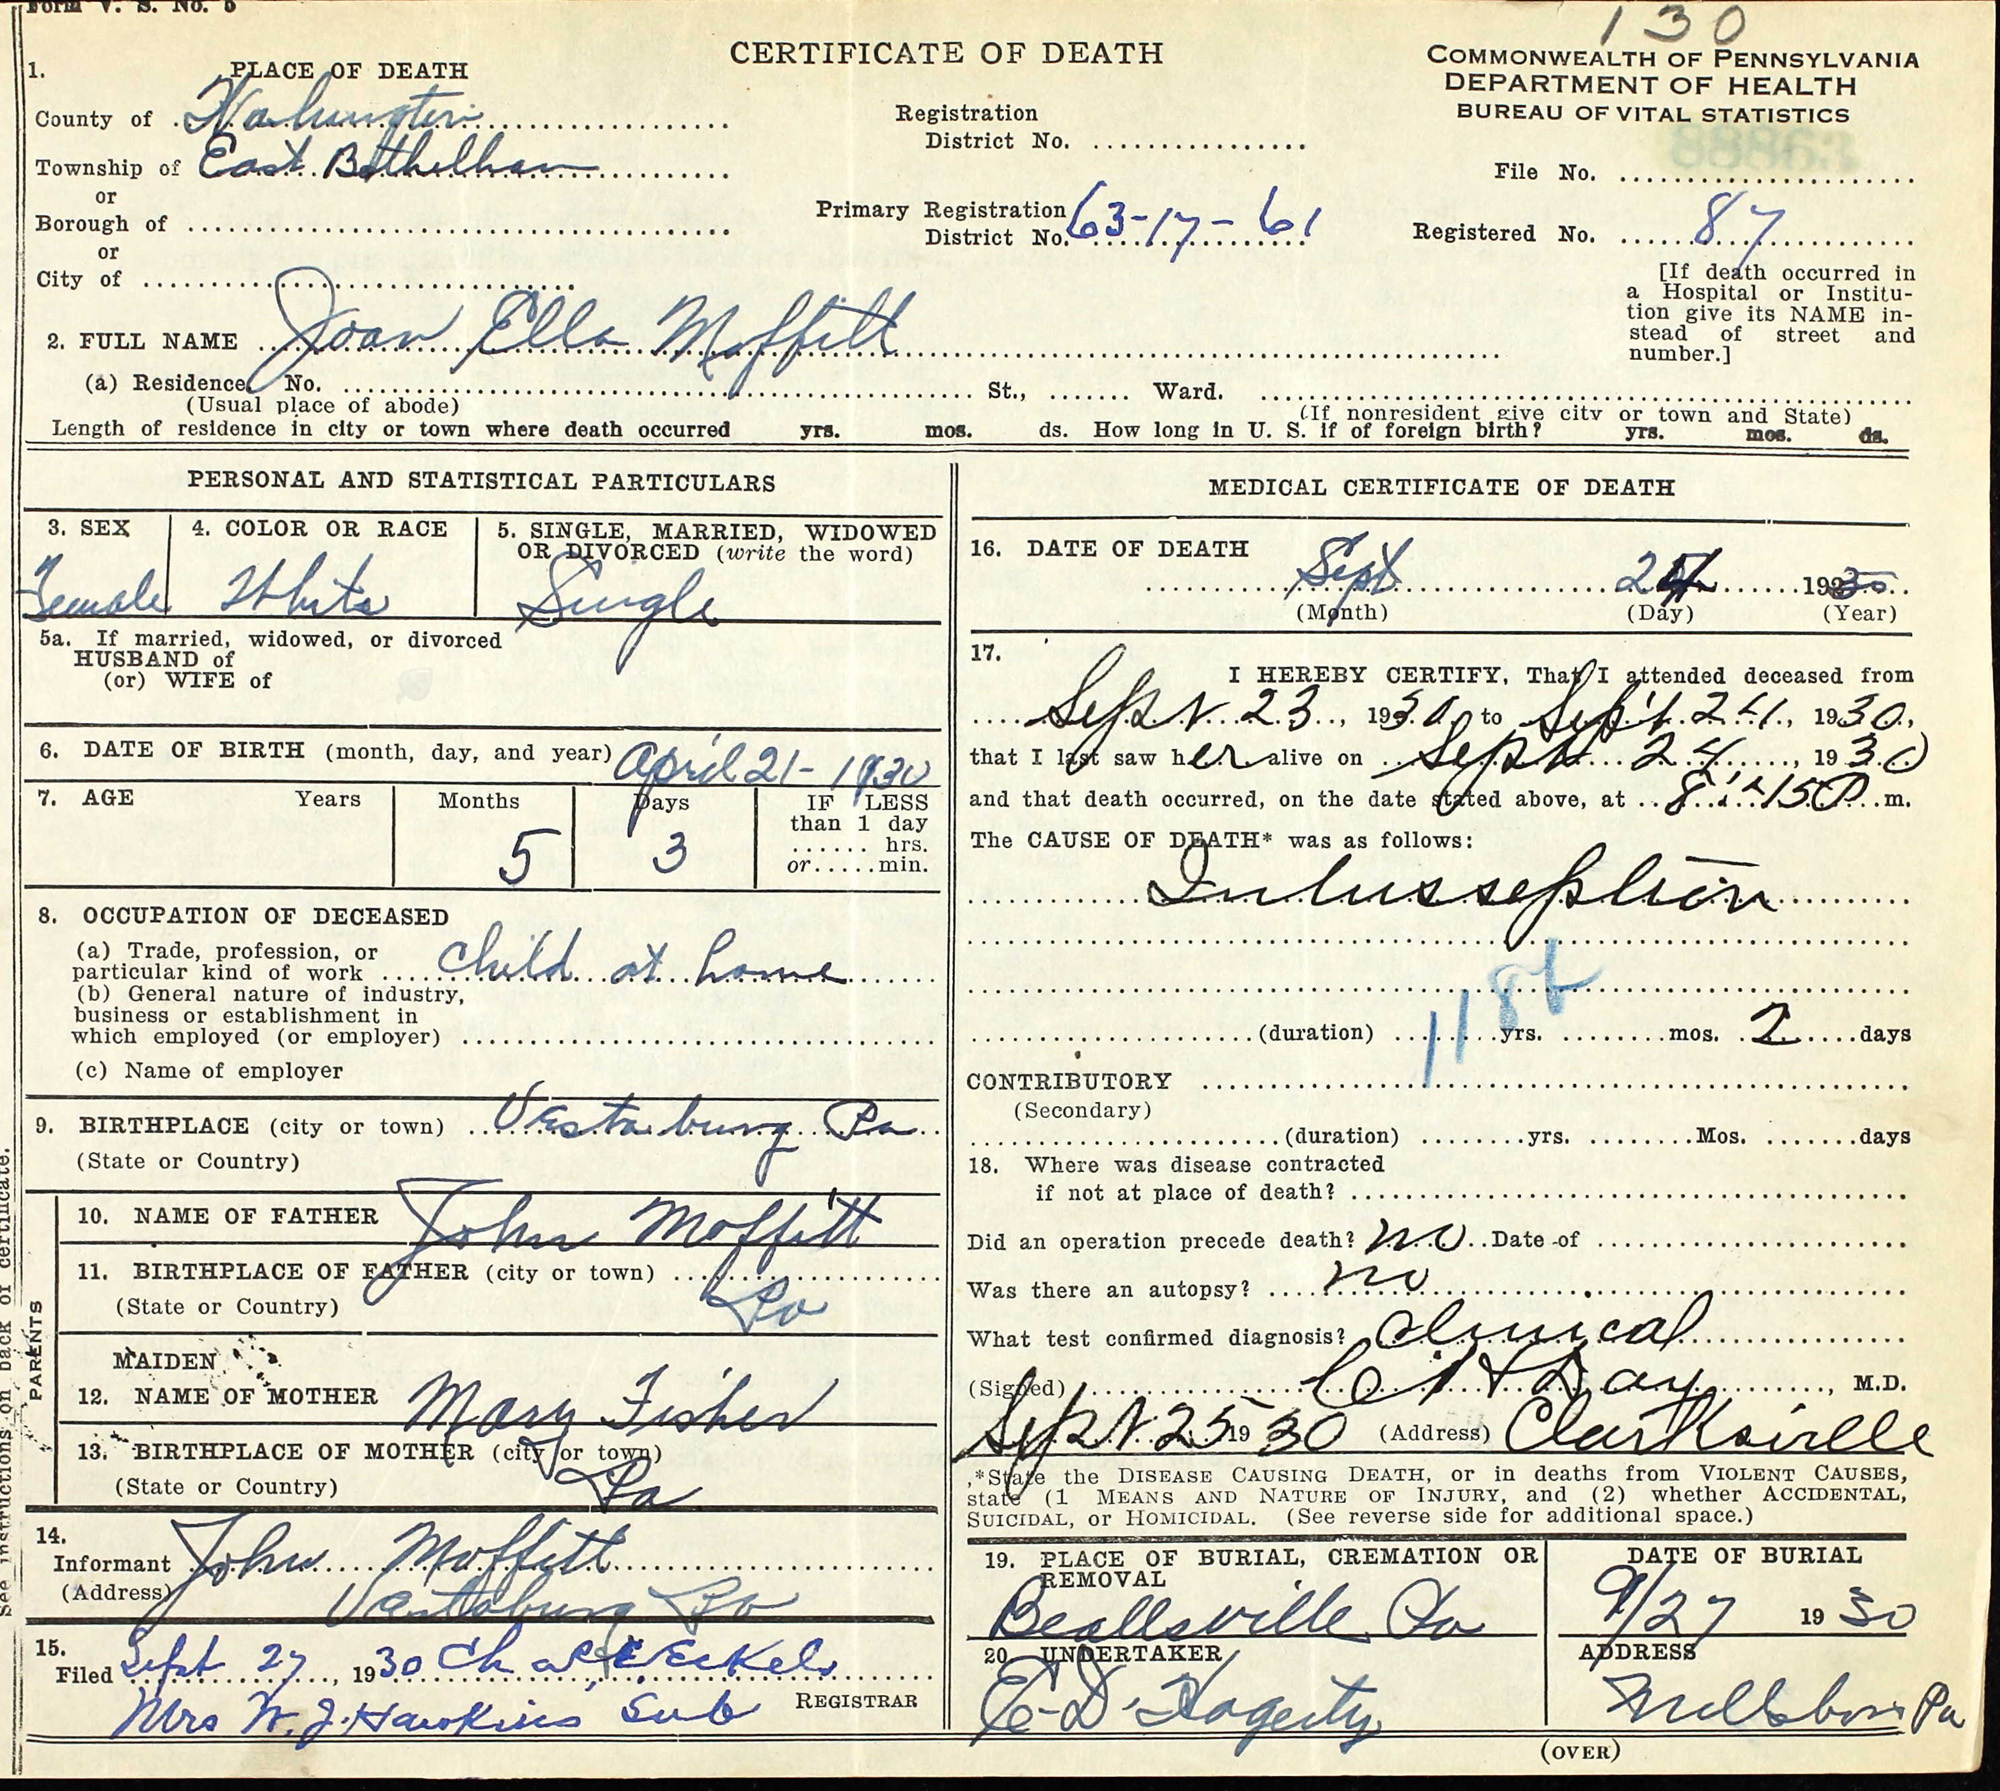 Form V. S. No. 5
130
CERTIFICATE OF DEATH
COMMONWEALTH OF PENNSYLVANIA
DEPARTMENT OF HEALTH
BUREAU OF VITAL STATISTICS
1. PLACE OF DEATH
County of Washington
Township of East Bethelham
or
Borough of
or
City of
Registration
District No.
Primary Registration
District No. 63-17-61
File No.
Registered No. 87
[If death occurred in
a Hospital or Institu-
tion give its NAME in-
stead of street and
number.]
2. FULL NAME Joan Ella Moffitt
(a) Residence. No. St., Ward.
(Usual place of abode) (If nonresident give city or town and State)
Length of residence in city or town where death occurred yrs. mos. ds. How long in U. S. if of foreign birth? yrs. mos. ds.
PERSONAL AND STATISTICAL PARTICULARS
3. SEX
Female
4. COLOR OR RACE
White
5. SINGLE, MARRIED, WIDOWED
OR DIVORCED (write the word)
Single
5a. If married, widowed, or divorced
HUSBAND of
(or) WIFE of
6. DATE OF BIRTH (month, day, and year) April 21-1930
7. AGE Years Months Days IF LESS
than 1 day
hrs.
or min.
5 3
8. OCCUPATION OF DECEASED
(a) Trade, profession, or
particular kind of work child at home
(b) General nature of industry,
business or establishment in
which employed (or employer)
(c) Name of employer
9. BIRTHPLACE (city or town) Vestaburg Pa
(State or Country)
PARENTS
10. NAME OF FATHER John Moffitt
11. BIRTHPLACE OF FATHER (city or town)
(State or Country) Pa
MAIDEN
12. NAME OF MOTHER Mary Fisher
13. BIRTHPLACE OF MOTHER (city or town)
(State or Country) Pa
14.
Informant John Moffitt
(Address) Vestaburg Pa
15.
Filed Sept 27, 1930 Eckels
Mrs W. J. Hawkins Sub REGISTRAR
See instructions on back of certificate.
MEDICAL CERTIFICATE OF DEATH
16. DATE OF DEATH
Sept 24 1930
(Month) (Day) (Year)
17.
I HEREBY CERTIFY, That I attended deceased from
Sept 23, 1930 to Sept 24, 1930,
that I last saw her alive on Sept 24, 1930
and that death occurred, on the date stated above, at 8:15 P m.
The CAUSE OF DEATH* was as follows:
Intusseption
118b
(duration) yrs. mos. 2 days
CONTRIBUTORY
(Secondary)
(duration) yrs. Mos. days
18. Where was disease contracted
if not at place of death?
Did an operation precede death? no Date of
Was there an autopsy? no
What test confirmed diagnosis? Clinical
(Signed) Day, M.D.
Sept 25 1930 (Address) Clarksville
*State the DISEASE CAUSING DEATH, or in deaths from VIOLENT CAUSES,
state (1 MEANS AND NATURE OF INJURY, and (2) whether ACCIDENTAL,
SUICIDAL, or HOMICIDAL. (See reverse side for additional space.)
19. PLACE OF BURIAL, CREMATION OR
REMOVAL
Beallsville Pa
DATE OF BURIAL
9/27 1930
20. UNDERTAKER
E. D. Hagerty
ADDRESS
Millsboro Pa
(OVER)